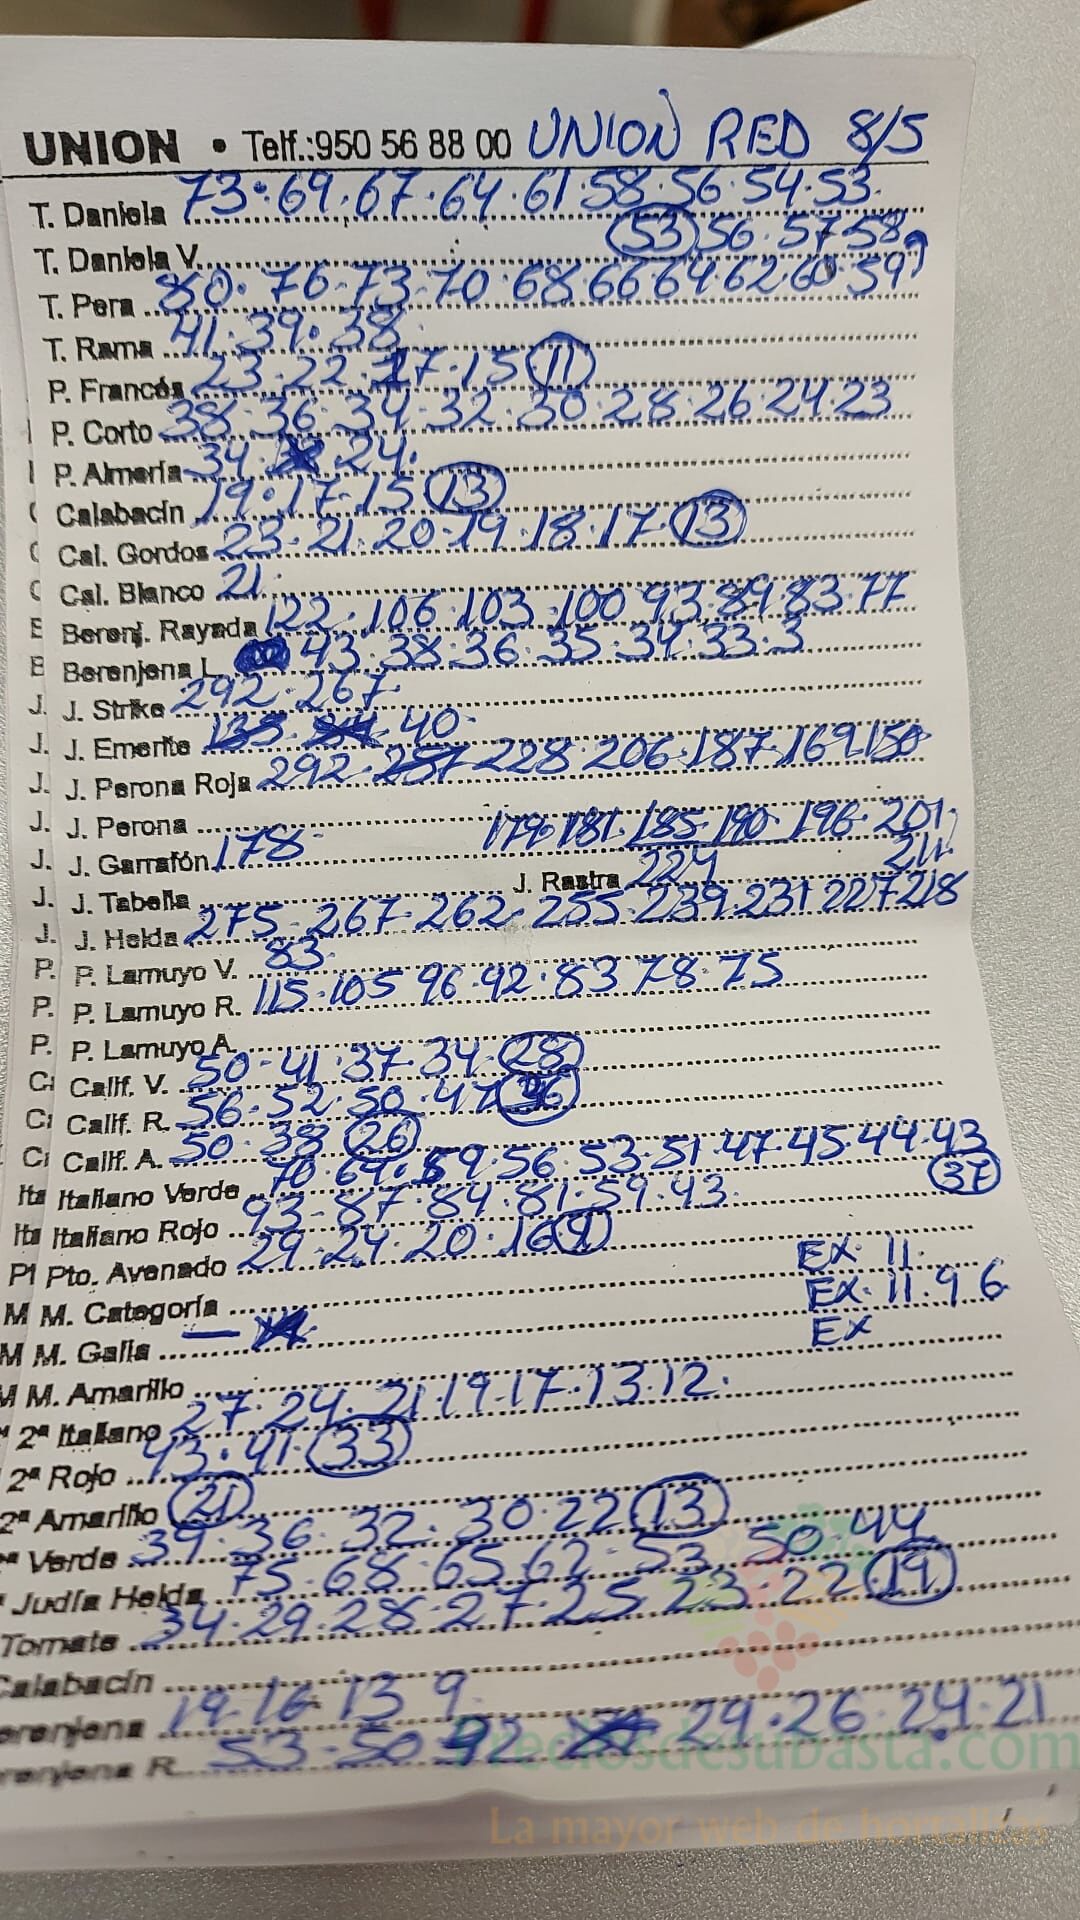 UNION • Telf.:950 56 88 00 UNION RED 8/5
T. Daniela 73·69·67·64·61·58·56·54·53
T. Daniela V. 53 56·57·58
T. Pera 80·76·73·70·68·66 64·62 60·59
T. Rama 41·39·38
P. Francés 23·22·17·15 11
P. Corto 38·36·34·32·30·28·26·24·23
P. Almería 34·24
Calabacín 19·17·15 13
Cal. Gordos 23·21·20·19·18·17·13
Cal. Blanco 21
Berenj. Rayada 122·106·103·100 93·89·83·77
Berenjena L. 43·38·36·35·34·33·3
J. Strike 292·267
J. Emerite 40
J. Perona Roja 292·257 228·206·187·169·150
J. Perona 179·181·185·190·196·201
J. Garrafón 178 211
J. Tabella J. Rastra 224
J. Helda 275·267·262·255·239·231 227 218
P. Lamuyo V. 83
P. Lamuyo R. 115·105 96·92·83 78·75
P. Lamuyo A.
Calif. V. 50·41·37·34·28
Calif. R. 56·52·50·47 36
Calif. A. 50·38 26
Italiano Verde 70·64·59·56·53·51·47·45·44·43
37
Italiano Rojo 93·87·84·81·59·43
Pto. Avenado 29·24·20·16 9
M. Categoría EX·11
M. Galia EX·11·9 6
M. Amarillo EX
2ª Italiano 27·24·21·19·17·13·12
2ª Rojo 43·41·33
2ª Amarillo 21
Verde 39·36·32·30·22 13
Judía Helda 75·68·65 62·53 50·44
Tomate 34·29·28·27·25 23·22 19
Calabacín
erenjena 19·16·13 9
renjena R. 53·50 42 29·26·24·21
Preciosdesubasta.com
La mayor web de hortalizas